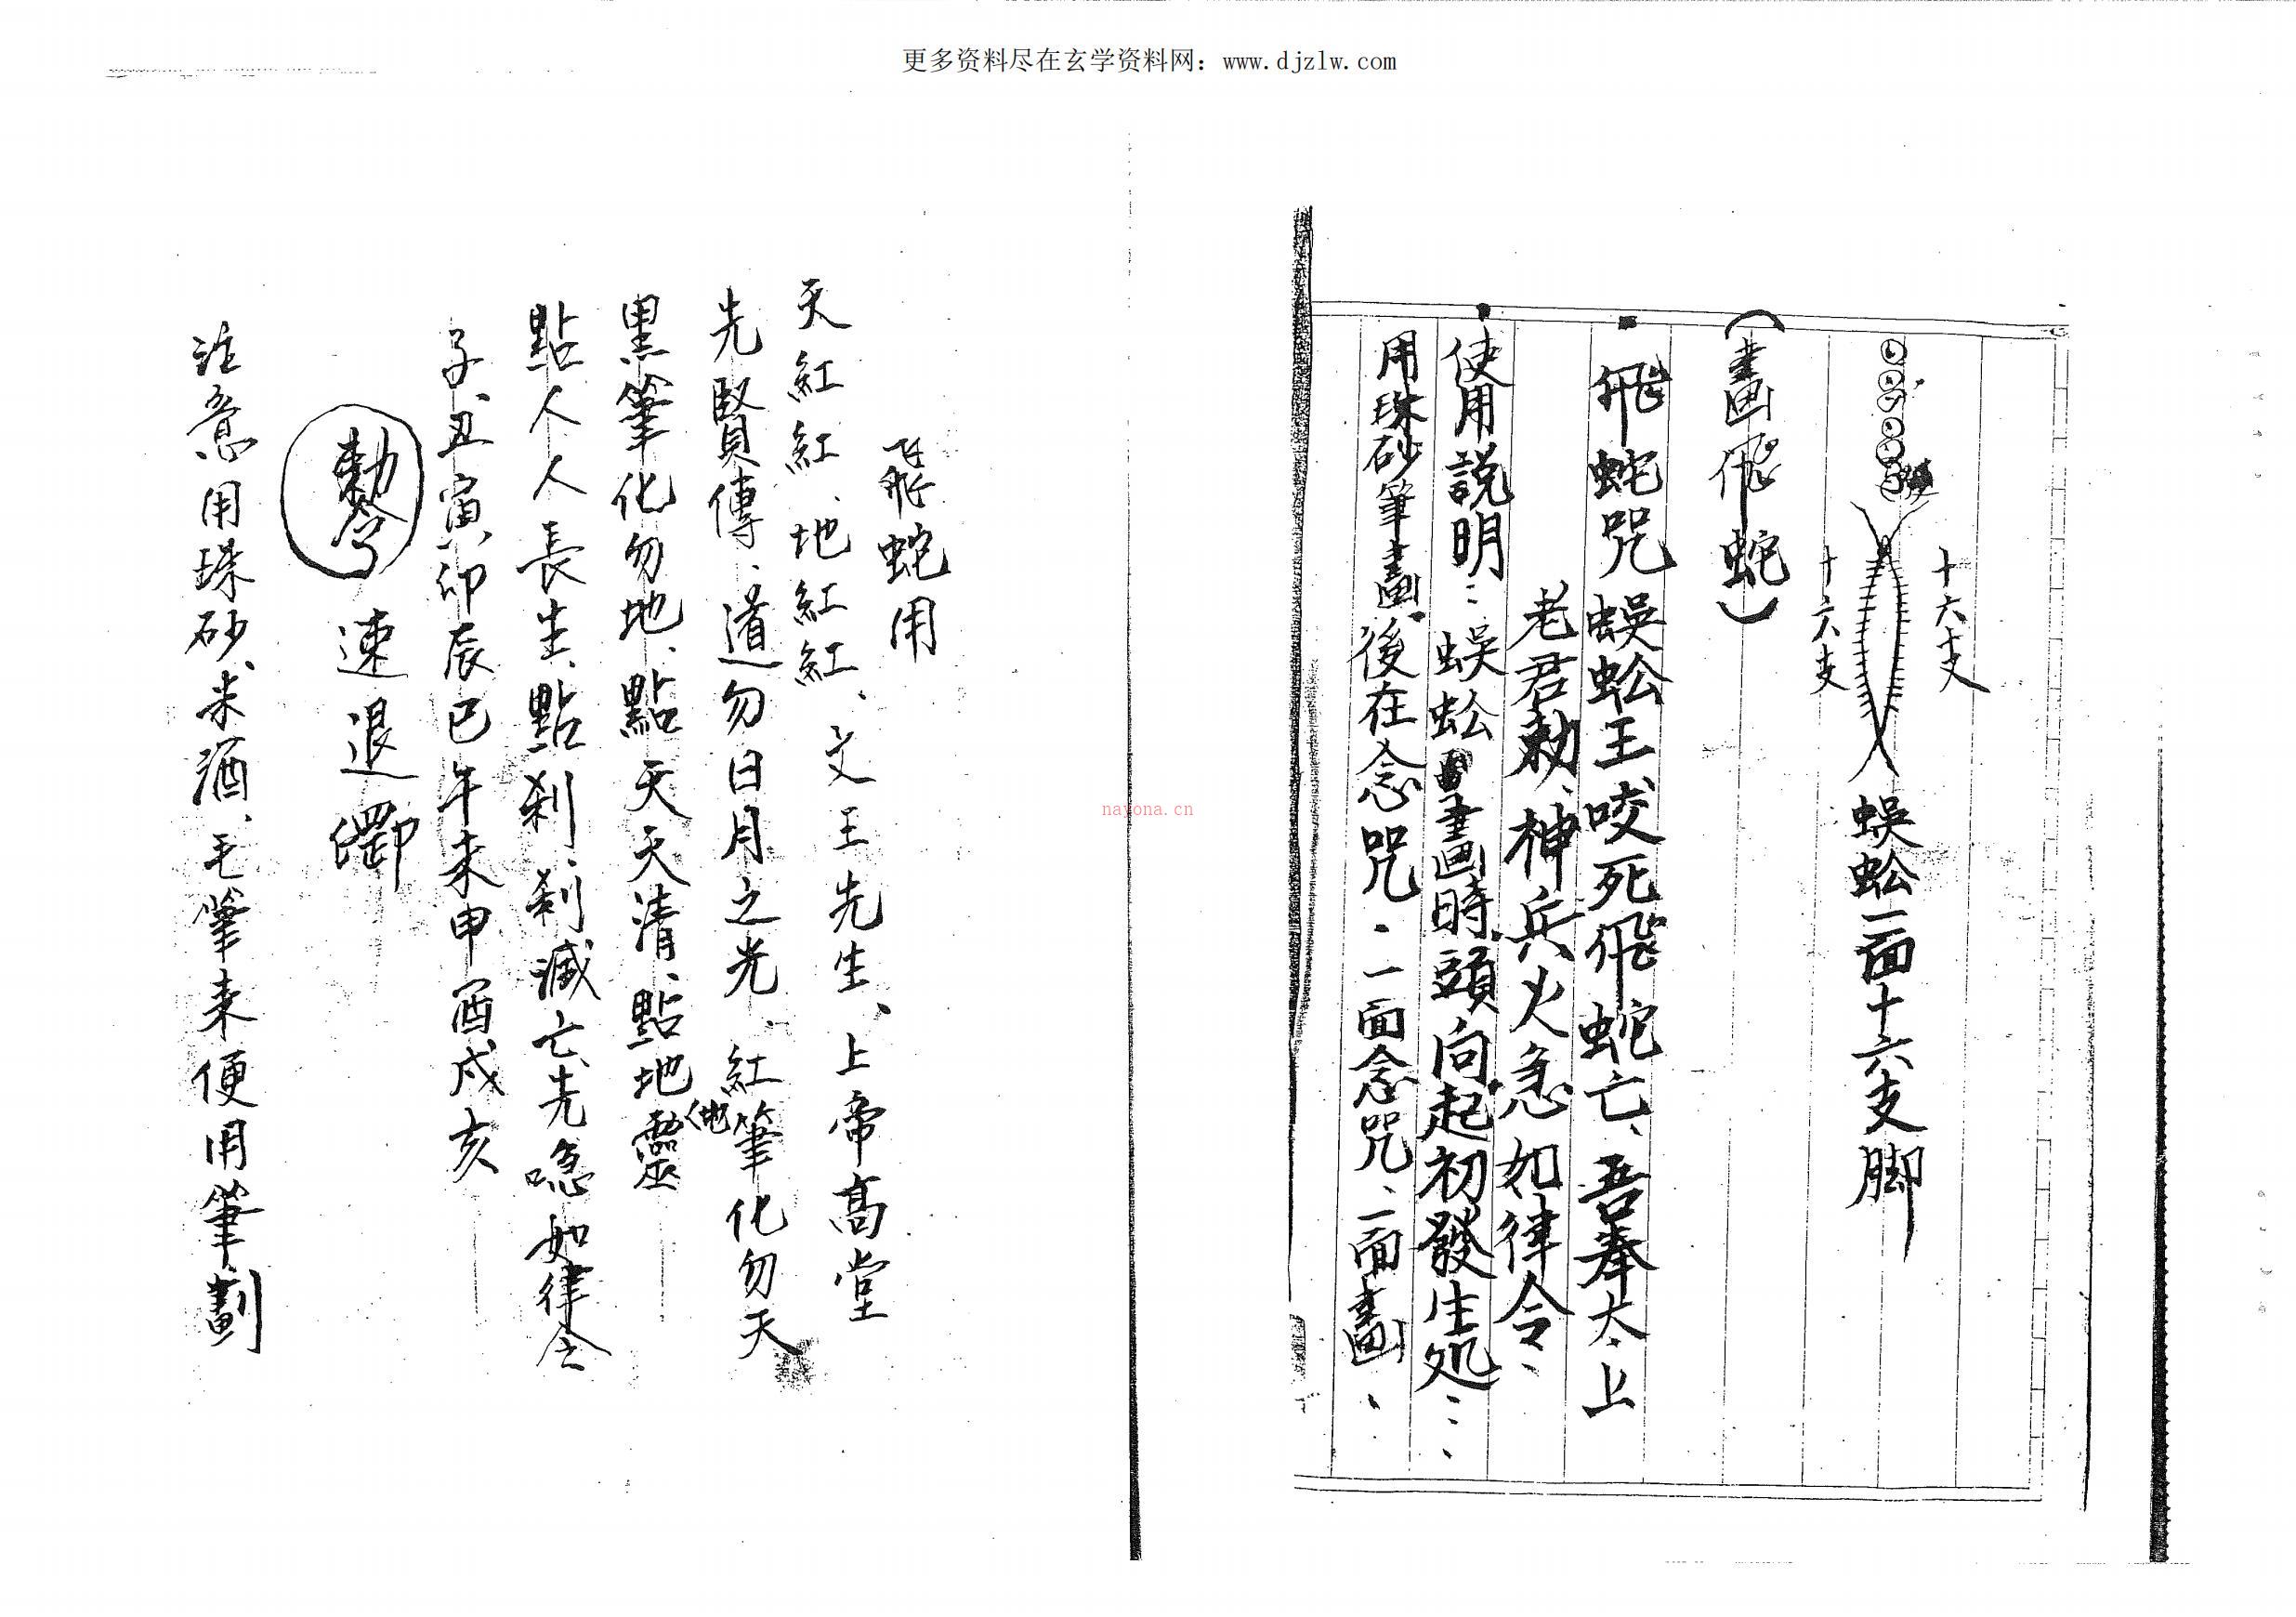 更多资料尽在玄学资料网：www.djzlw.com
十六支
十六支
蜈蚣一面十六支脚
（畫飛蛇）
飛蛇咒蜈蚣王咬死飛蛇亡、吾奉太上
老君勅、神兵火急如律令、
使用説明：蜈蚣畫時頭向起初發生処：
用珠砂筆畫、後在念咒、一面念咒、一面畫、
nayona.cn
飛蛇用
天紅紅、地紅紅、文王先生、上帝高堂
先賢傳、道勿日月之光、紅筆化勿天
黑筆化勿地、點天天清、點地地靈
點人人長生、點刹、刹滅亡、先 如律令
子、丑、寅、卯辰巳午未申酉戌亥
勅令 速退
注意用珠砂、米酒、毛筆来便用筆劃